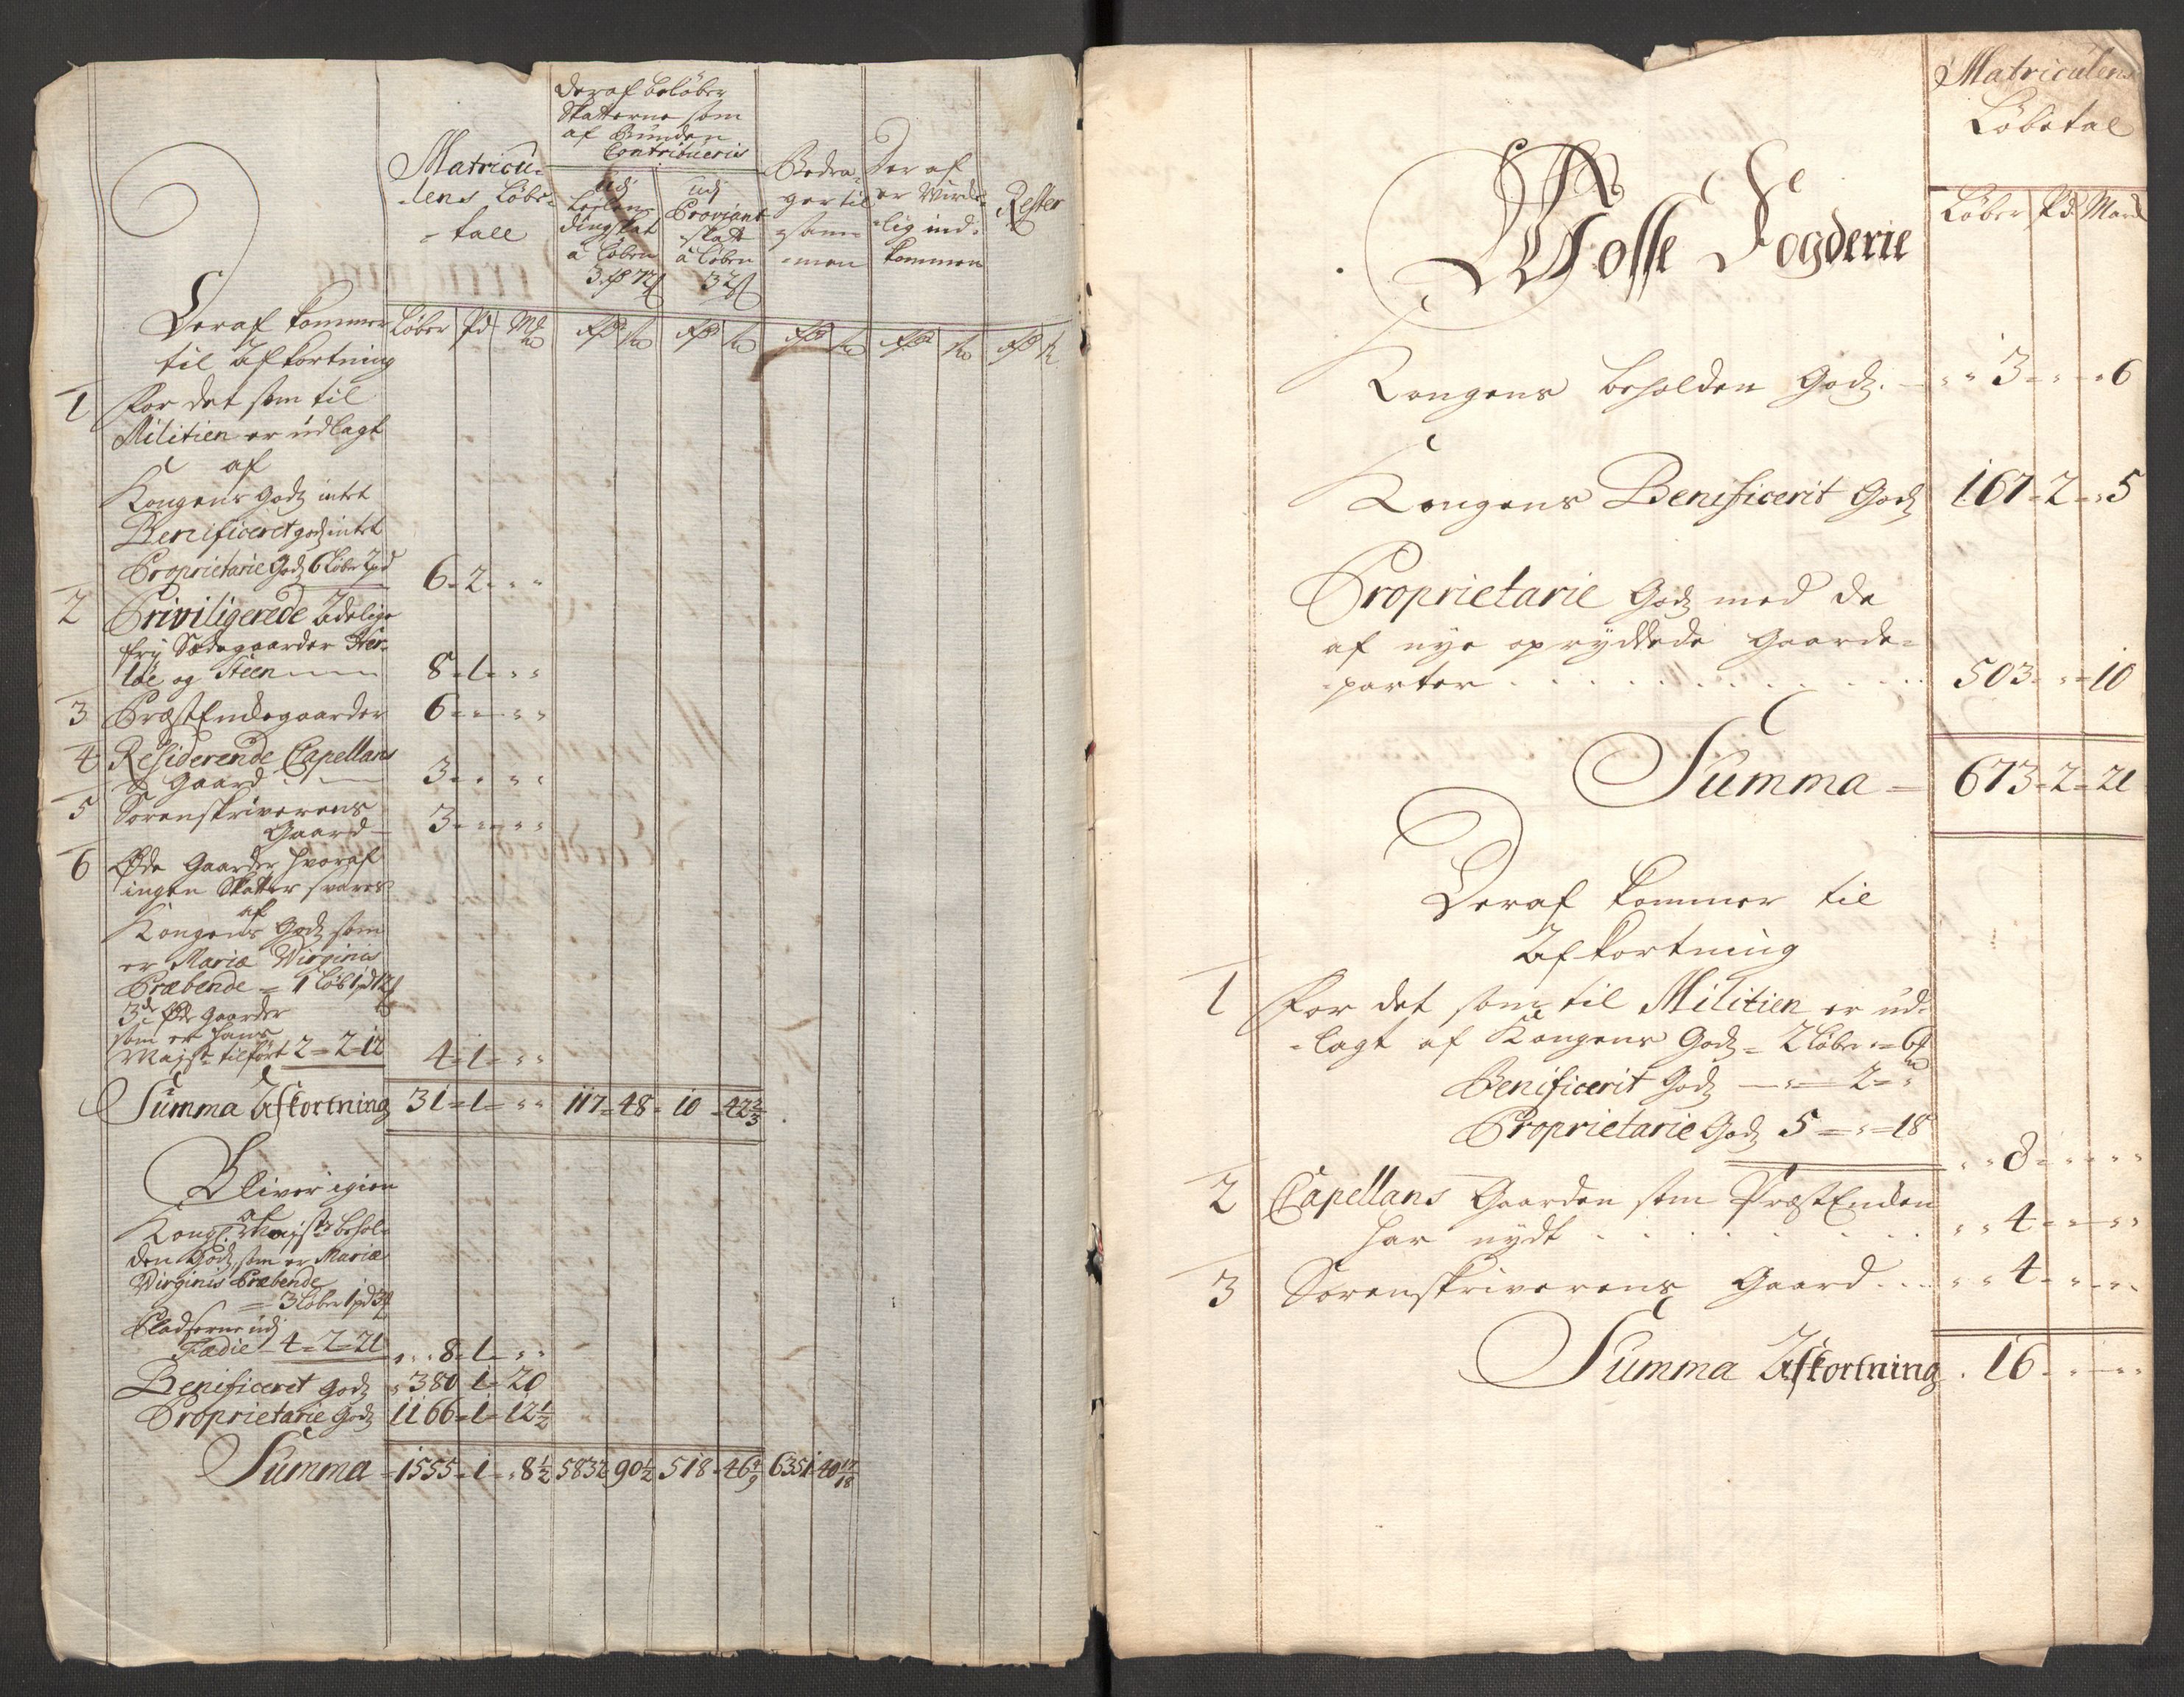 Deraf beløber
Skatterne som
af Bunden
Contribueris
Matricu-
-lens Løbe-
-tall
udj
Leilen-
dingskat
à Løben
3 ₰ 72 ß
udj
Proviant
-skatt
à Løben
32 ß
Bedra-
ger til
-sam-
-men
Der af
er Wirke-
-lig ind-
kommen
Rester
Løber Pd Mk
Deraf kommer
til Afkortning
1 For det som til
Militien er udlagt
af
Kongens Godz intet
Benificeret godz intet
Proprietarie Godz 6 Løber 2 pd 6 = 2 = " "
2 Priviligerede Adelige
fry Sædegaarder Her-
løe og Steen 8 = 1 = " "
3 PræstEndegaarder 6 = " = " "
4 Residerende Capellans
Gaard 3 = " = " "
5 Sorenskriverens
Gaard 3 = " = " "
6 Øde Gaarder hvoraf
ingen Skatter svares
af
Kongens Godz som
er Mariæ Virginis
Præbende = 1 Løb 1 pd 12
3de øde Gaarder
som er hans
Majst: tilført 2 = 2 = 12 4 = 1 = " "
Summa Afkortning 31 = 1 = " " 117 = 48 = 10 = 42 2/3
Bliver igien
af
Kongl: Mayst: behol-
den Godz, som er Mariæ
Virginis Præbende
= 3 Løber 1 pd 3
Pladserne udj
Fædie 4 = 2 = 21 " " 8 = 1 = " "
Benificeret Godz " 380 1 = 20
Proprietarie Godz 1166 = 1 = 12 1/2
Summa = 1555 = 1 = " 8 1/2 5832 90 1/2 518 = 46 4/9 6351 40 17/18
Matriculens
Løbetal
Løber Pd Mark
Wosse Fogderie
Kongens beholden Godz. " " 3 = " = " 6
Kongens Benificerit Godz 167 = 2 = " 5
Proprietarie Godz med de
af nye opryddede Gaarde-
-parter 503 = " = 10
Summa = 673 = 2 = 21
Deraf kommer til
Afkortning
1 For det som til Militien er ud-
-lagt af Kongens Godz = 2 Løber " = 6
Benificerit Godz " = 2 = "
Proprietarie Godz 5 = " = 18
" " 8 = " = " "
2 Capellans Gaarden som PræstEnden
har nydt " " 4 = " = " "
3 Sorenskriverens Gaard " " 4 = " = " "
Summa Afkortning . 16 = " = " "